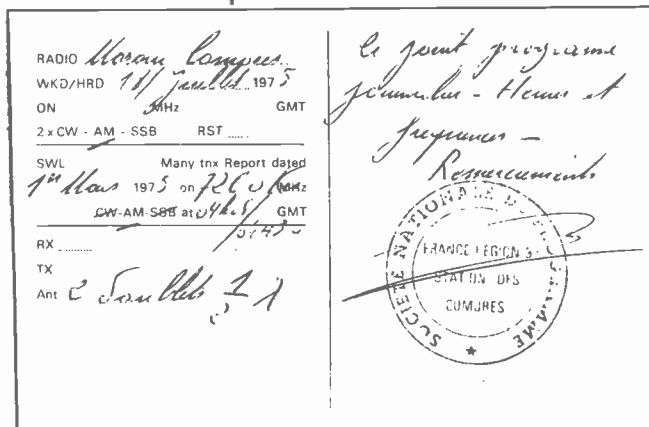 RADIO Moroni Comores
WKD/HRD 18/ Juillet 1975
ON MHz GMT
2 x CW - AM - SSB RST .....
SWL Many tnx Report dated
1er Mars 1975 on 7260 KHz
CW-AM-SSB at GMT
RX ........
TX
Ant 2 Doublets
Ci joint programme
journalier - Heures et
fréquences -
Remerciements
SOCIETE NATIONALE DE PROGRAMME
FRANCE REGION 3
STATION DES
COMORES